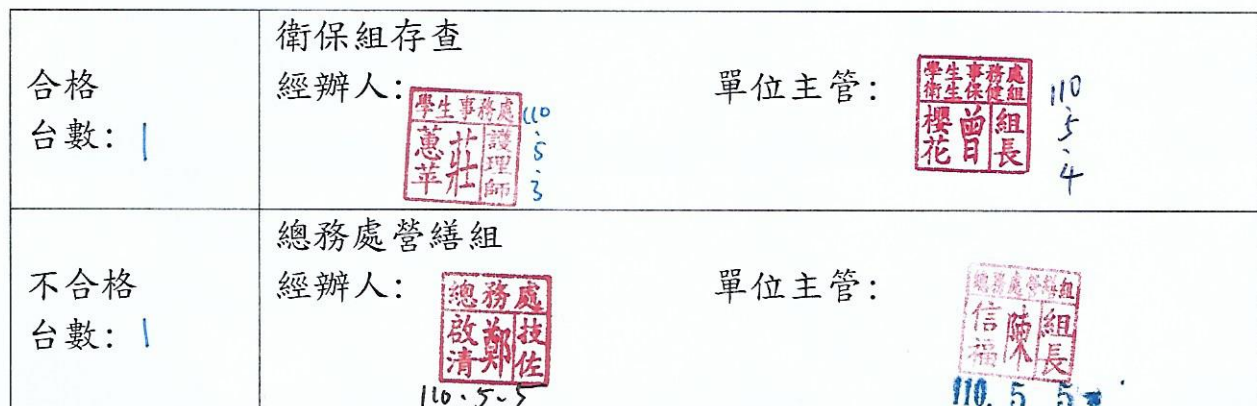 合格
台數: 1
衛保組存查
經辦人:
學生事務處
護理師
莊蕙苹
110.5.3
單位主管:
學生事務處
衛生保健組
組長
曾櫻花
110.5.4
不合格
台數: 1
總務處營繕組
經辦人:
總務處
技佐
鄭啟清
110.5.5
單位主管:
總務處營繕組
組長
陳信福
110. 5 5